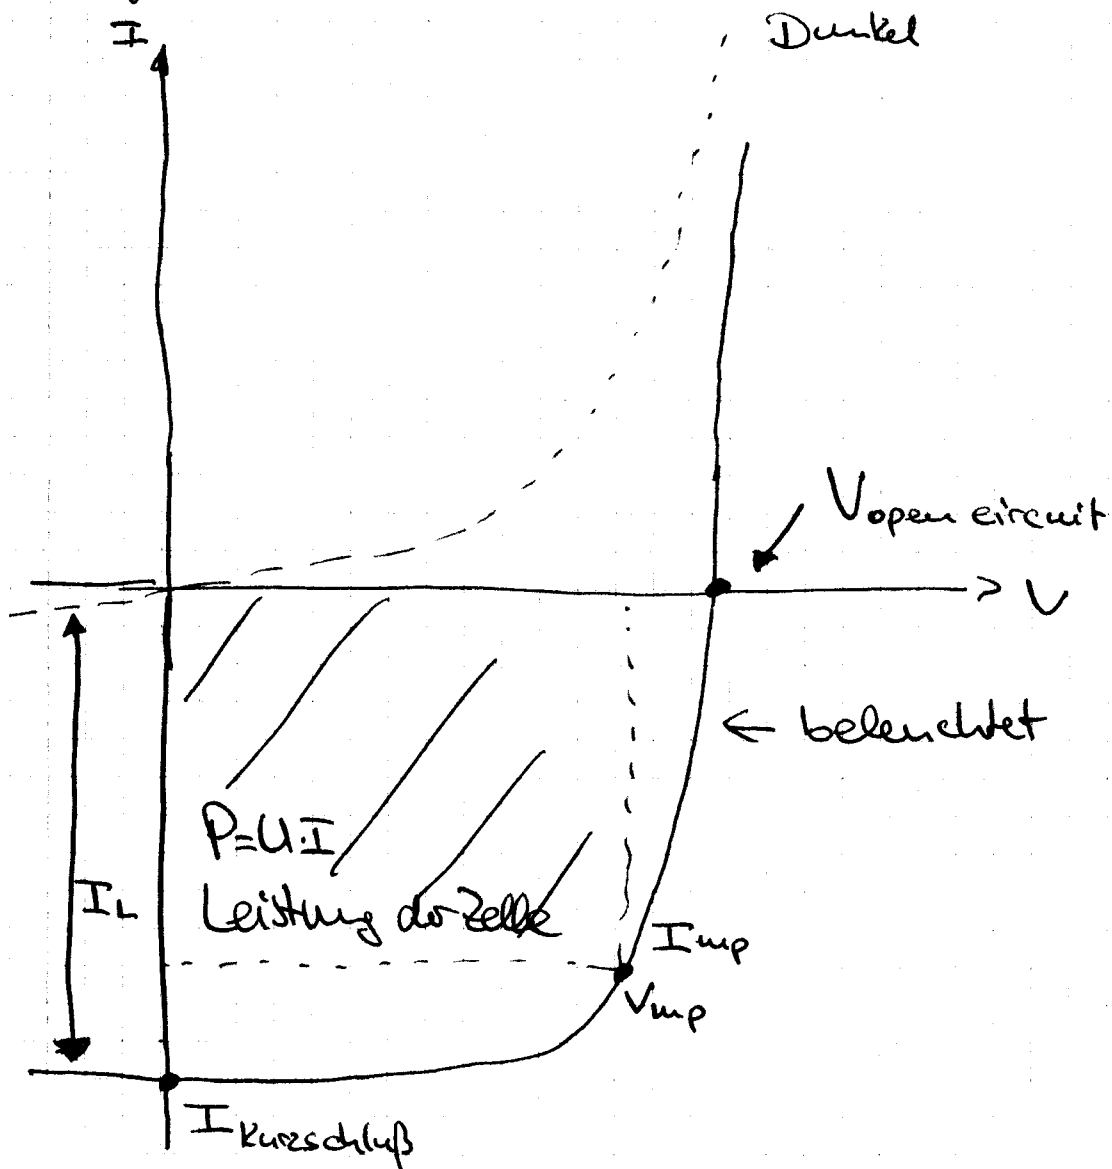 I
Dunkel
V open circuit
V
← beleuchtet
P=U·I
I L
Leistung der Zelle
I mp
V mp
I Kurzschluß